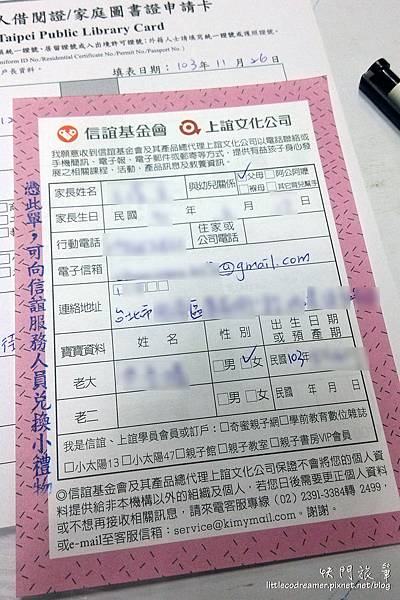 人借閱證/家庭圖書證申請卡
Taipei Public Library Card
填表日期：103年11月26日
信誼基金會 上誼文化公司
我願意收到信誼基金會及其產品總代理上誼文化公司以電話聯絡或
手機簡訊、電子報、電子郵件或郵寄等方式，提供有益孩子身心發
展之相關課程、活動、產品訊息及教養資訊。
家長姓名 與幼兒關係 ☑父母 □阿公阿嬤
□褓母 □其它育兒幫手
家長生日 民國 年 月 日
行動電話 住家或
公司電話
電子信箱 @gmail.com
連絡地址 □□□
台北市 區
寶寶資料 姓 名 性 別 出生日期
或預產期
老大 □男 ☑女 民國103年
老二 □男 □女 民國 年 月 日
我是信誼、上誼學員會員或訂戶：□奇蜜親子網□學前教育數位雜誌
□小太陽13 □小太陽47□親子館 □親子教室 □親子書房VIP會員
◎信誼基金會及其產品總代理上誼文化公司保證不會將您的個人資
料提供給非本機構以外的組織及個人，若您日後需要更正個人資料
或不想再接收相關訊息，請來電客服專線（02）2391-3384轉 2499，
或e-mail至客服信箱：service@kimymail.com。謝謝。
憑此單，可向信誼服務人員兌換小禮物
快門旅筆
littlecodreamer.pixnet.net/blog